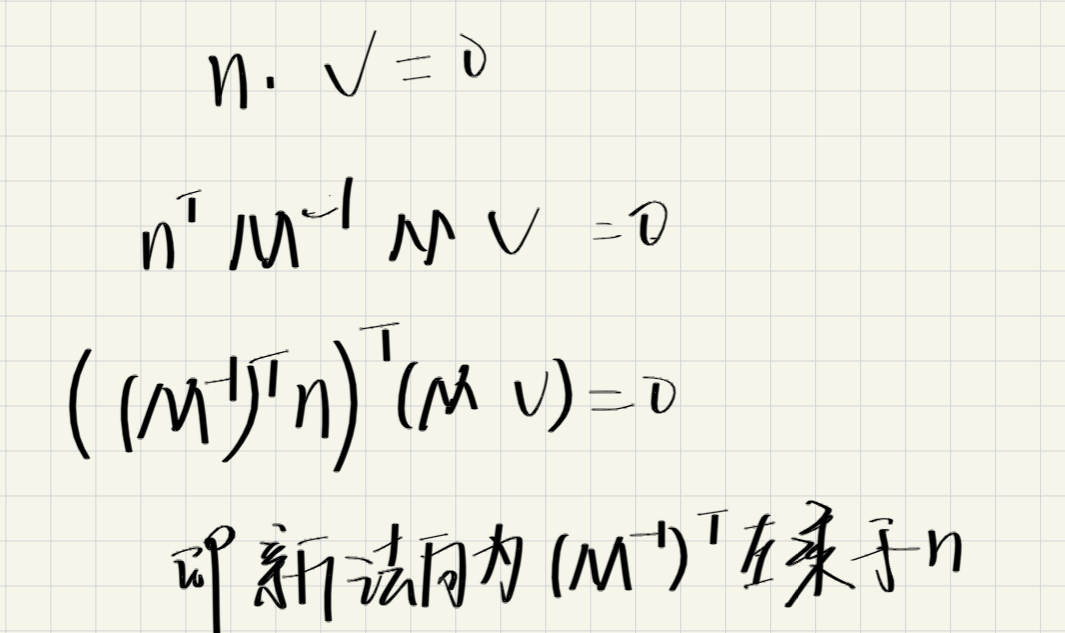 n · v = 0
nᵀ M⁻¹ M v = 0
((M⁻¹)ᵀ n)ᵀ (M v) = 0
即新法向为 (M⁻¹)ᵀ 左乘于 n